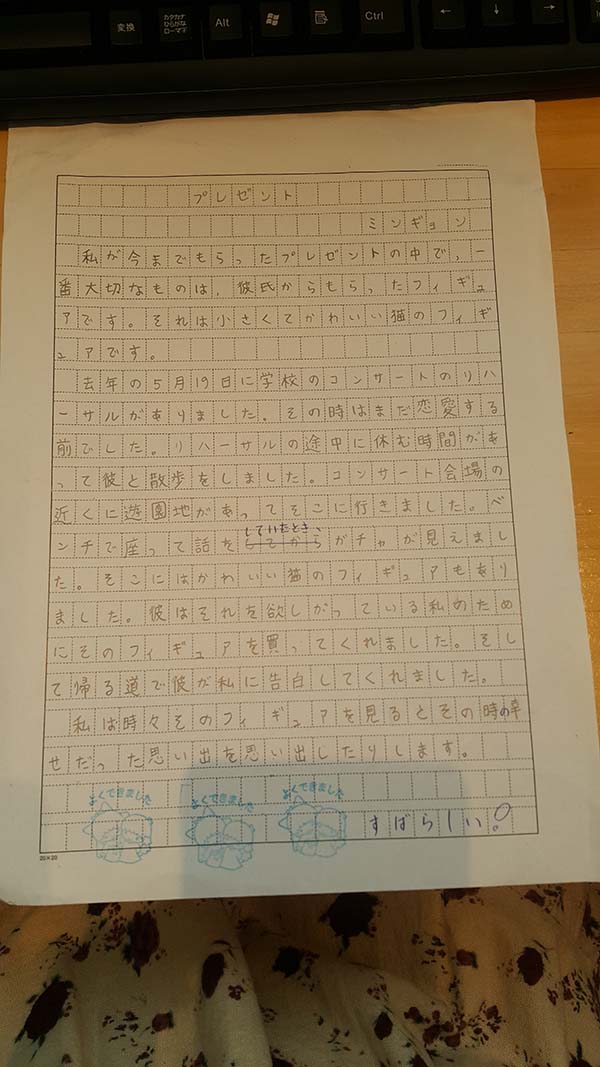 変換
カタカナ
ひらがな
ローマ字
Alt
Ctrl
←
↓
→
プレゼント
ミンギョン
私が今までもらったプレゼントの中で、一
番大切なものは、彼氏からもらったフィギュ
アです。それは小さくてかわいい猫のフィギ
ュアです。
去年の5月19日に学校のコンサートのリハ
ーサルがありました。その時はまだ恋愛する
前でした。リハーサルの途中に休む時間があ
って彼と散歩をしました。コンサート会場の
近くに遊園地があってそこに行きました。ベ
していたとき、
ンチで座って話をしてからガチャが見えまし
た。そこにはかわいい猫のフィギュアもあり
ました。彼はそれを欲しがっている私のため
にそのフィギュアを買ってくれました。そし
て帰る道で彼が私に告白してくれました。
私は時々そのフィギュアを見るとその時の幸
せだった思い出を思い出したりします。
よくできました よくできました よくできました
すばらしい!
20×20